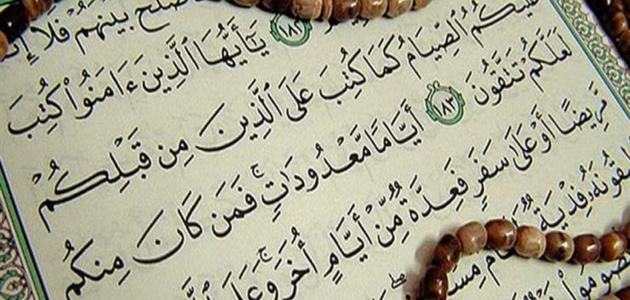 صلح بينهم فلا إث
١٨٢ يَٰٓأَيُّهَا ٱلَّذِينَ ءَامَنُوا۟ كُتِبَ
عَلَيْكُمُ ٱلصِّيَامُ كَمَا كُتِبَ عَلَى ٱلَّذِينَ مِن قَبْلِكُمْ
لَعَلَّكُمْ تَتَّقُونَ ١٨٣ أَيَّامًا مَّعْدُودَٰتٍ ۚ فَمَن كَانَ مِنكُم
مَّرِيضًا أَوْ عَلَىٰ سَفَرٍ فَعِدَّةٌ مِّنْ أَيَّامٍ أُخَرَ ۚ وَعَلَى
يقُونَهُۥ فِدْيَةٌ